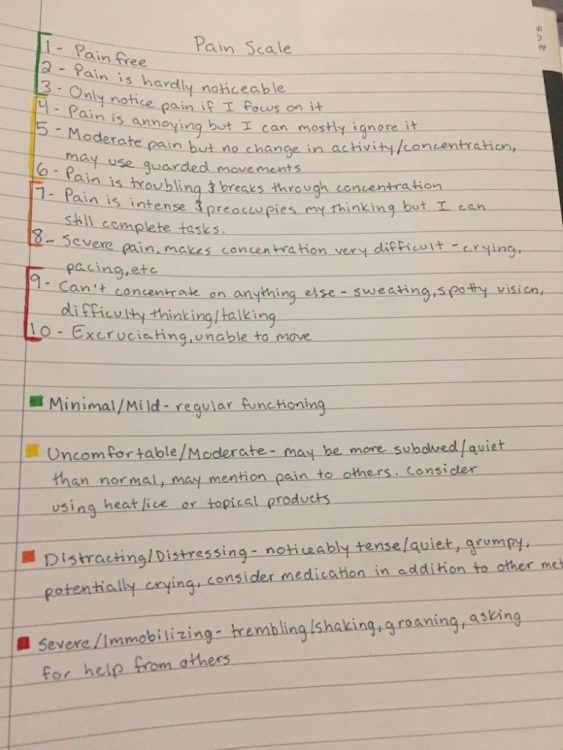 Pain Scale
1 - Pain free
2 - Pain is hardly noticeable
3 - Only notice pain if I focus on it
4 - Pain is annoying but I can mostly ignore it
5 - Moderate pain but no change in activity/concentration,
may use guarded movements
6 - Pain is troubling & breaks through concentration
7 - Pain is intense & preoccupies my thinking but I can
still complete tasks.
8 - Severe pain, makes concentration very difficult - crying,
pacing, etc
9 - Can't concentrate on anything else - sweating, spotty vision,
difficulty thinking/talking
10 - Excruciating, unable to move
Minimal/Mild - regular functioning
Uncomfortable/Moderate - may be more subdued/quiet
than normal, may mention pain to others. Consider
using heat/ice or topical products
Distracting/Distressing - noticeably tense/quiet, grumpy,
potentially crying, consider medication in addition to other met
Severe/Immobilizing - trembling/shaking, groaning, asking
for help from others